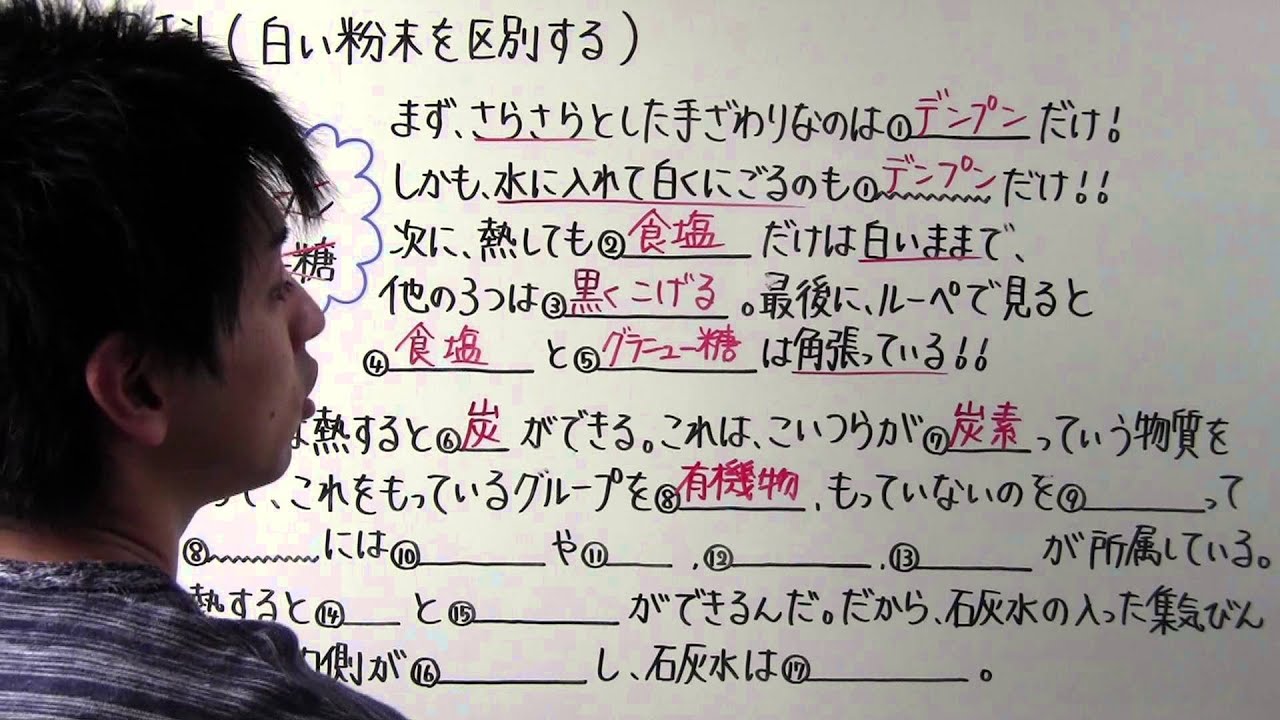 科(白い粉末を区別する)
まず、さらさらとした手ざわりなのは①デンプンだけ!
しかも、水に入れて白くにごるのも①デンプンだけ!!
次に、熱しても②食塩だけは白いままで、
糖
他の3つは③黒くこげる。最後に、ルーペで見ると
④食塩と⑤グラニュー糖は角張っている!!
は熱すると⑥炭ができる。これは、こいつらが⑦炭素っていう物質を
て、これをもっているグループを⑧有機物、もっていないのを⑨って
⑧には⑩や⑪、⑫、⑬が所属している。
熱すると⑭と⑮ができるんだ。だから、石灰水の入った集気びん
内側が⑯し、石灰水は⑰。